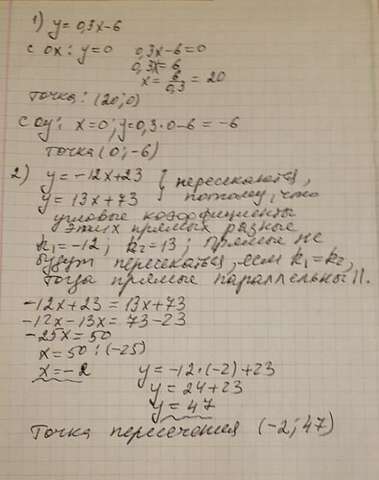 1) y = 0,3x-6
с ox: y=0 0,3x-6=0
0,3x=6
x = 6/0,3 = 20
точка: (20; 0)
с oy: x=0; y=0,3·0-6 = -6
точка (0; -6)
2) y = -12x+23 } пересекаются,
y = 13x+73 } потому, что
угловые коэффициенты
этих прямых разные
k₁=-12; k₂=13; Прямые не
будут пересекаться, если k₁=k₂,
тогда прямые параллельны ||.
-12x+23 = 13x+73
-12x-13x = 73-23
-25x = 50
x = 50:(-25)
x = -2 y = -12·(-2)+23
y = 24+23
y = 47
Точка пересечения (-2; 47)